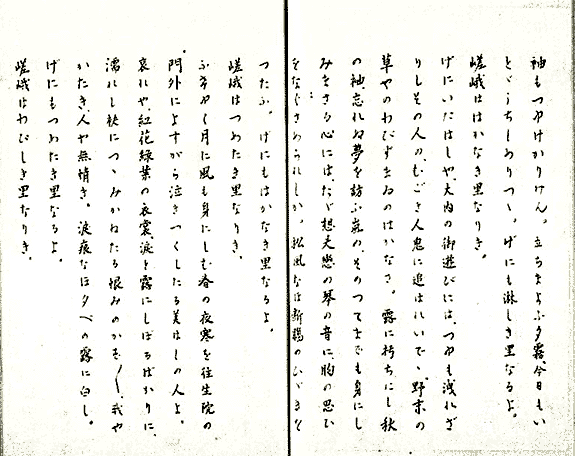 袖もつゆけかりけん。立ちまよふ夕霧、今日もい
とゞうちしめりつゝ。げにも淋しき里なるよ。
嵯峨ははかなき里なりき。
げにいたはしや、大内の御遊びには、つゆも洩れざ
りしその人の、むごき人鬼に追はれいで、野末の
草やのわびずまゐのはかなさ。露に朽ちにし秋
の袖、忘れぬ夢を訪ふ嵐の、そのつてまでも身にし
みをさる心には、たゞ想夫戀の琴の音に、胸の思ひ
をなぐさめられしか。松風なほ新墾のひゞきを
つたふ。げにもはかなき里なるよ。
嵯峨はつめたき里なりき。
ふけゆく月に風も身にしむ春の夜寒を往生院の
門外によすがら泣きつくしたる美はしの人よ。
哀れや、紅花綠葉の衣裳、淚を露にしぼるばかりに、
濡れし袂につゝみかねたる恨みのかず〳〵、我や
かたき、人や無情き。淚痕なほ夕べの露に白し。
げにもつめたき里なるよ。
嵯峨はわびしき里なりき。